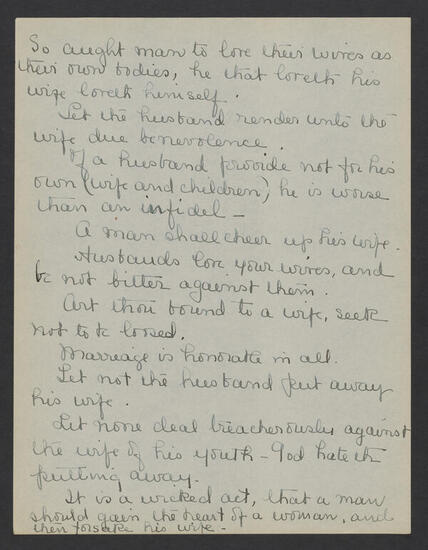 So aught man to love their wives as
their own bodies, he that loveth his
wife loveth himself.
Let the husband render unto the
wife due benevolence.
If a husband provide not for his
own (wife and children) he is worse
than an infidel -
A man shall cheer up his wife.
Husbands love your wives, and
be not bitter against them.
Art thou bound to a wife, seek
not to be loosed.
Marreage is honorable in all.
Let not the husband put away
his wife.
Let none deal treacherously against
the wife of his youth - God hateth
putting away.
It is a wicked act, that a man
should gain the heart of a woman, and
then forsake his wife -